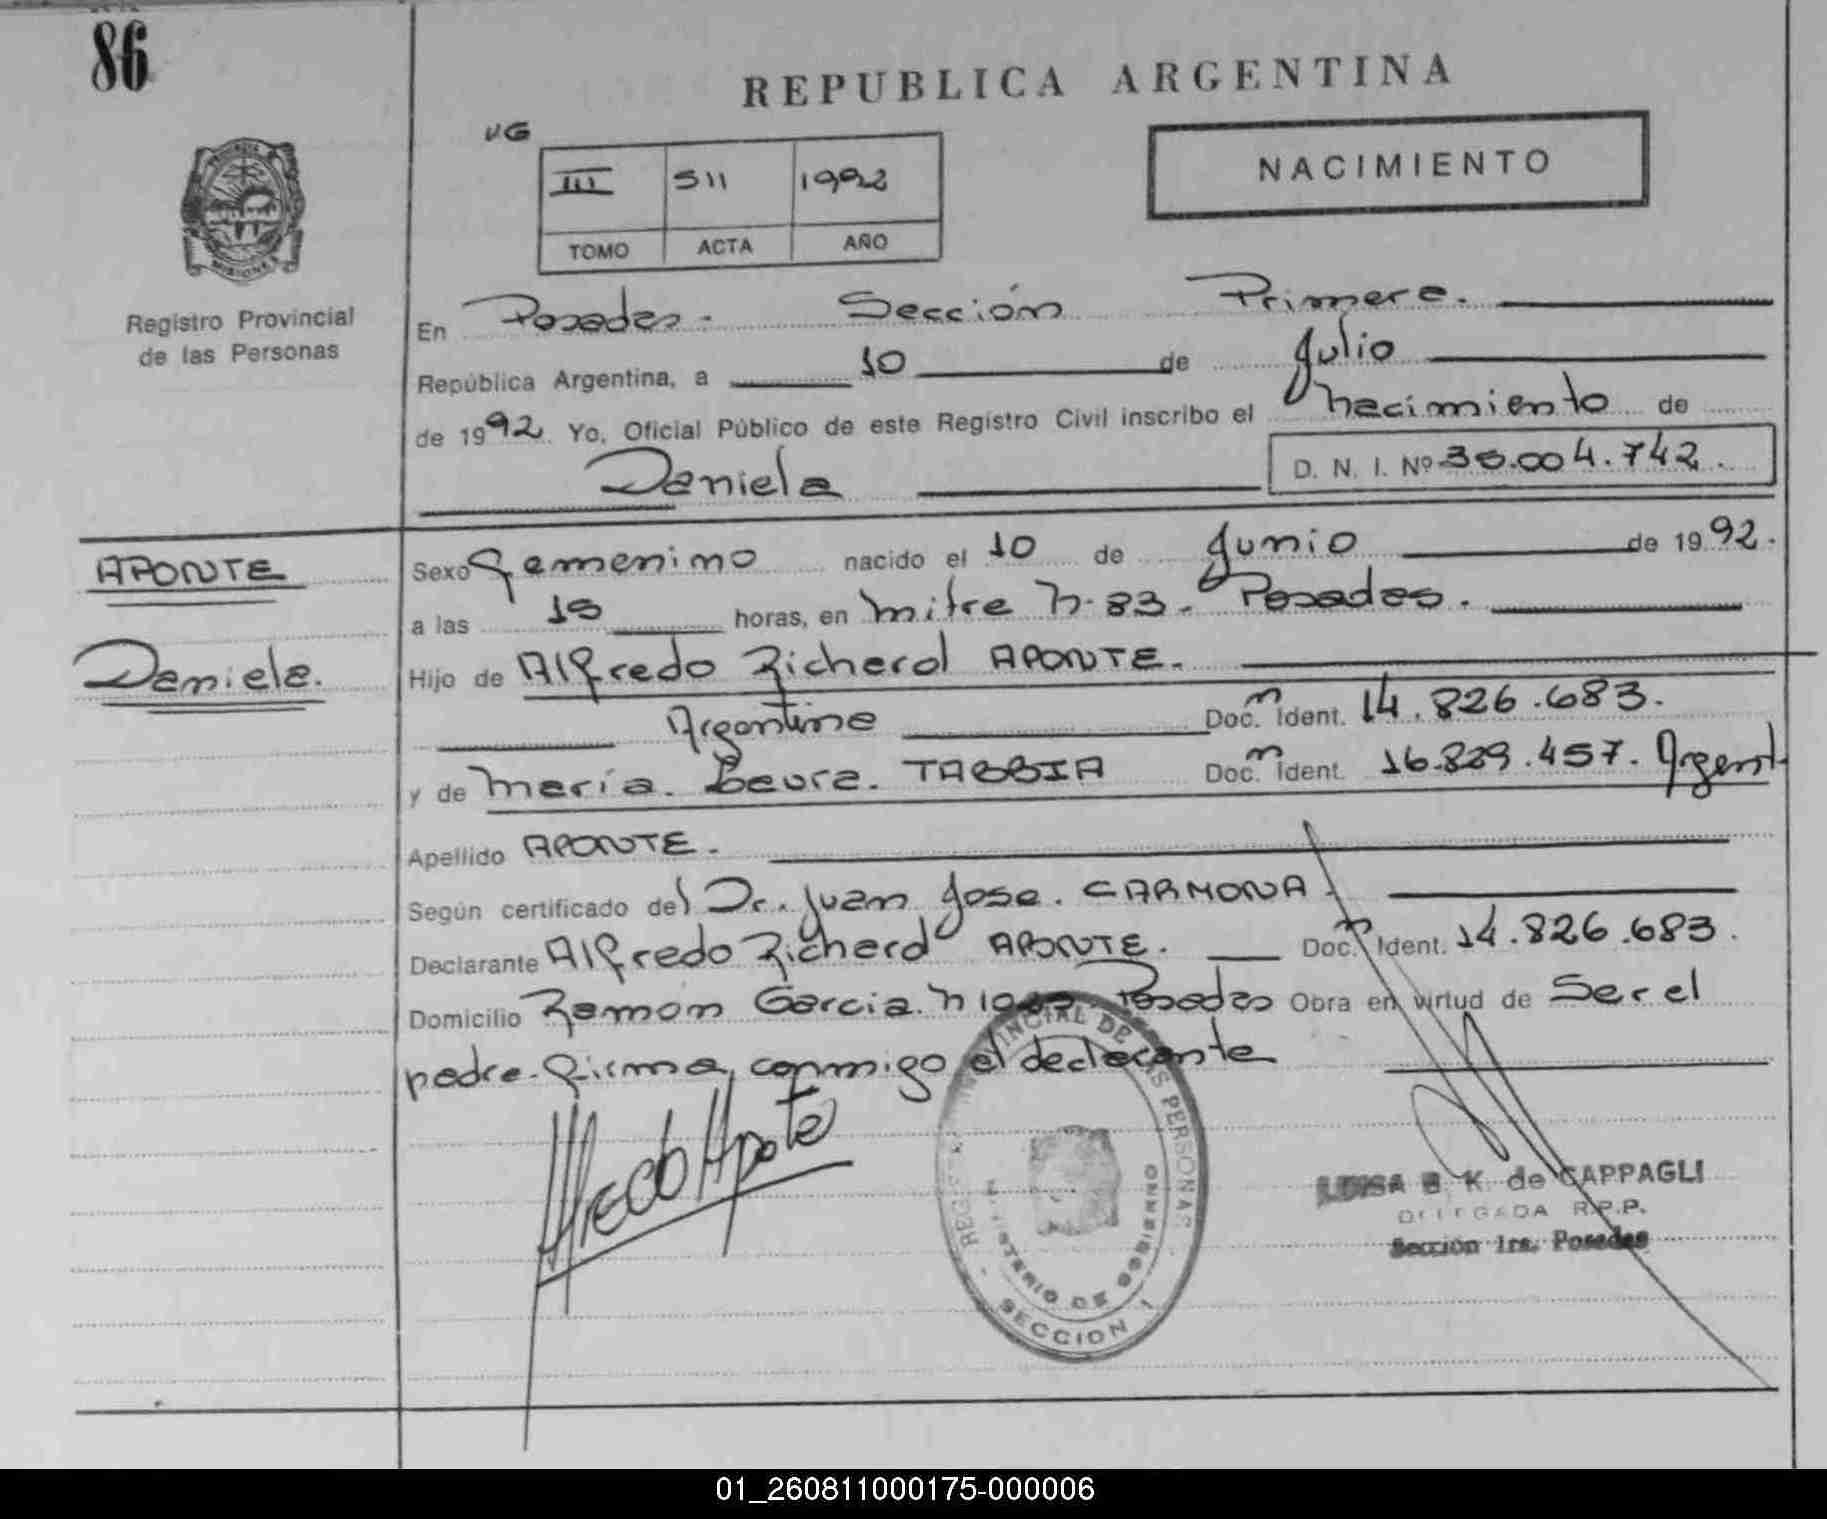 86
REPUBLICA ARGENTINA
VG
III 511 1992
TOMO ACTA AÑO
NACIMIENTO
PROVINCIA DE
MISIONES
Registro Provincial
de las Personas
En Posadas. Sección Primera.
República Argentina, a 10 de Julio
de 1992 Yo, Oficial Público de este Registro Civil inscribo el nacimiento de
Daniela D. N. I. Nº 36.004.742.
APONTE
Daniela.
Sexo Femenino nacido el 10 de Junio de 1992.
a las horas, en Mitre N. 83. Posadas.
Hijo de Alfredo Richard APONTE.
Argentino Doc. Ident. 14.826.683.
y de María. Laura. TABBIA Doc. Ident. 16.829.457. Argent.
Apellido APONTE.
Según certificado del Dr. Juan Jose. CARMONA.
Declarante Alfredo Richard APONTE. Doc. Ident. 14.826.683.
Domicilio Ramon Garcia. N Posadas Obra en virtud de Ser el
padre. Firma conmigo el declarante
Alfredo Aponte
REGISTRO PROVINCIAL DE LAS PERSONAS
MINISTERIO DE GOBIERNO
SECCION 1
LUISA B. K. de CAPPAGLI
DELEGADA R.P.P.
Sección 1ra. Posadas
01_260811000175-000006